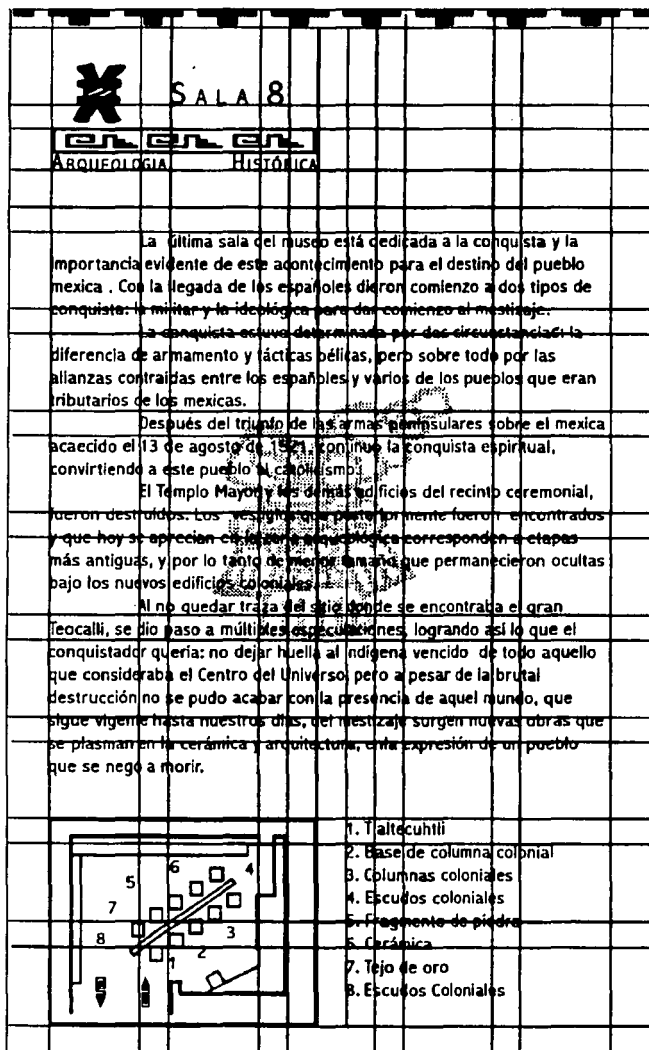 SALA 8
ARQUEOLOGIA HISTÓRICA
La última sala del museo está dedicada a la conquista y la
importancia evidente de este acontecimiento para el destino del pueblo
mexica . Con la llegada de los españoles dieron comienzo a dos tipos de
conquista: la militar y la ideológica para dar comienzo al mestizaje.
La conquista estuvo determinada por dos circunstancias: la
diferencia de armamento y tácticas bélicas, pero sobre todo por las
alianzas contraidas entre los españoles y varios de los pueblos que eran
tributarios de los mexicas.
Después del triunfo de las armas peninsulares sobre el mexica
acaecido el 13 de agosto de 1521, continuo la conquista espiritual,
convirtiendo a este pueblo al catolicismo.
El Templo Mayor y los demás edificios del recinto ceremonial,
fueron destruidos. Los vestigios que posteriormente fueron encontrados
y que hoy se aprecian en la zona arqueológica corresponden a etapas
más antiguas, y por lo tanto de menor tamaño que permanecieron ocultas
bajo los nuevos edificios coloniales.
Al no quedar traza del sitio donde se encontraba el gran
Teocalli, se dio paso a múltiples especulaciones, logrando así lo que el
conquistador queria: no dejar huella al indígena vencido de todo aquello
que consideraba el Centro del Universo, pero a pesar de la brutal
destrucción no se pudo acabar con la presencia de aquel mundo, que
sigue vigente hasta nuestros días, del mestizaje surgen nuevas obras que
se plasman en la cerámica y arquitectura, en la expresión de un pueblo
que se negó a morir.
1. Tlaltecuhtli
2. Base de columna colonial
3. Columnas coloniales
4. Escudos coloniales
5. Fragmento de piedra
6. Cerámica
7. Tejo de oro
8. Escudos Coloniales
6
4
5
7
3
8
2
1